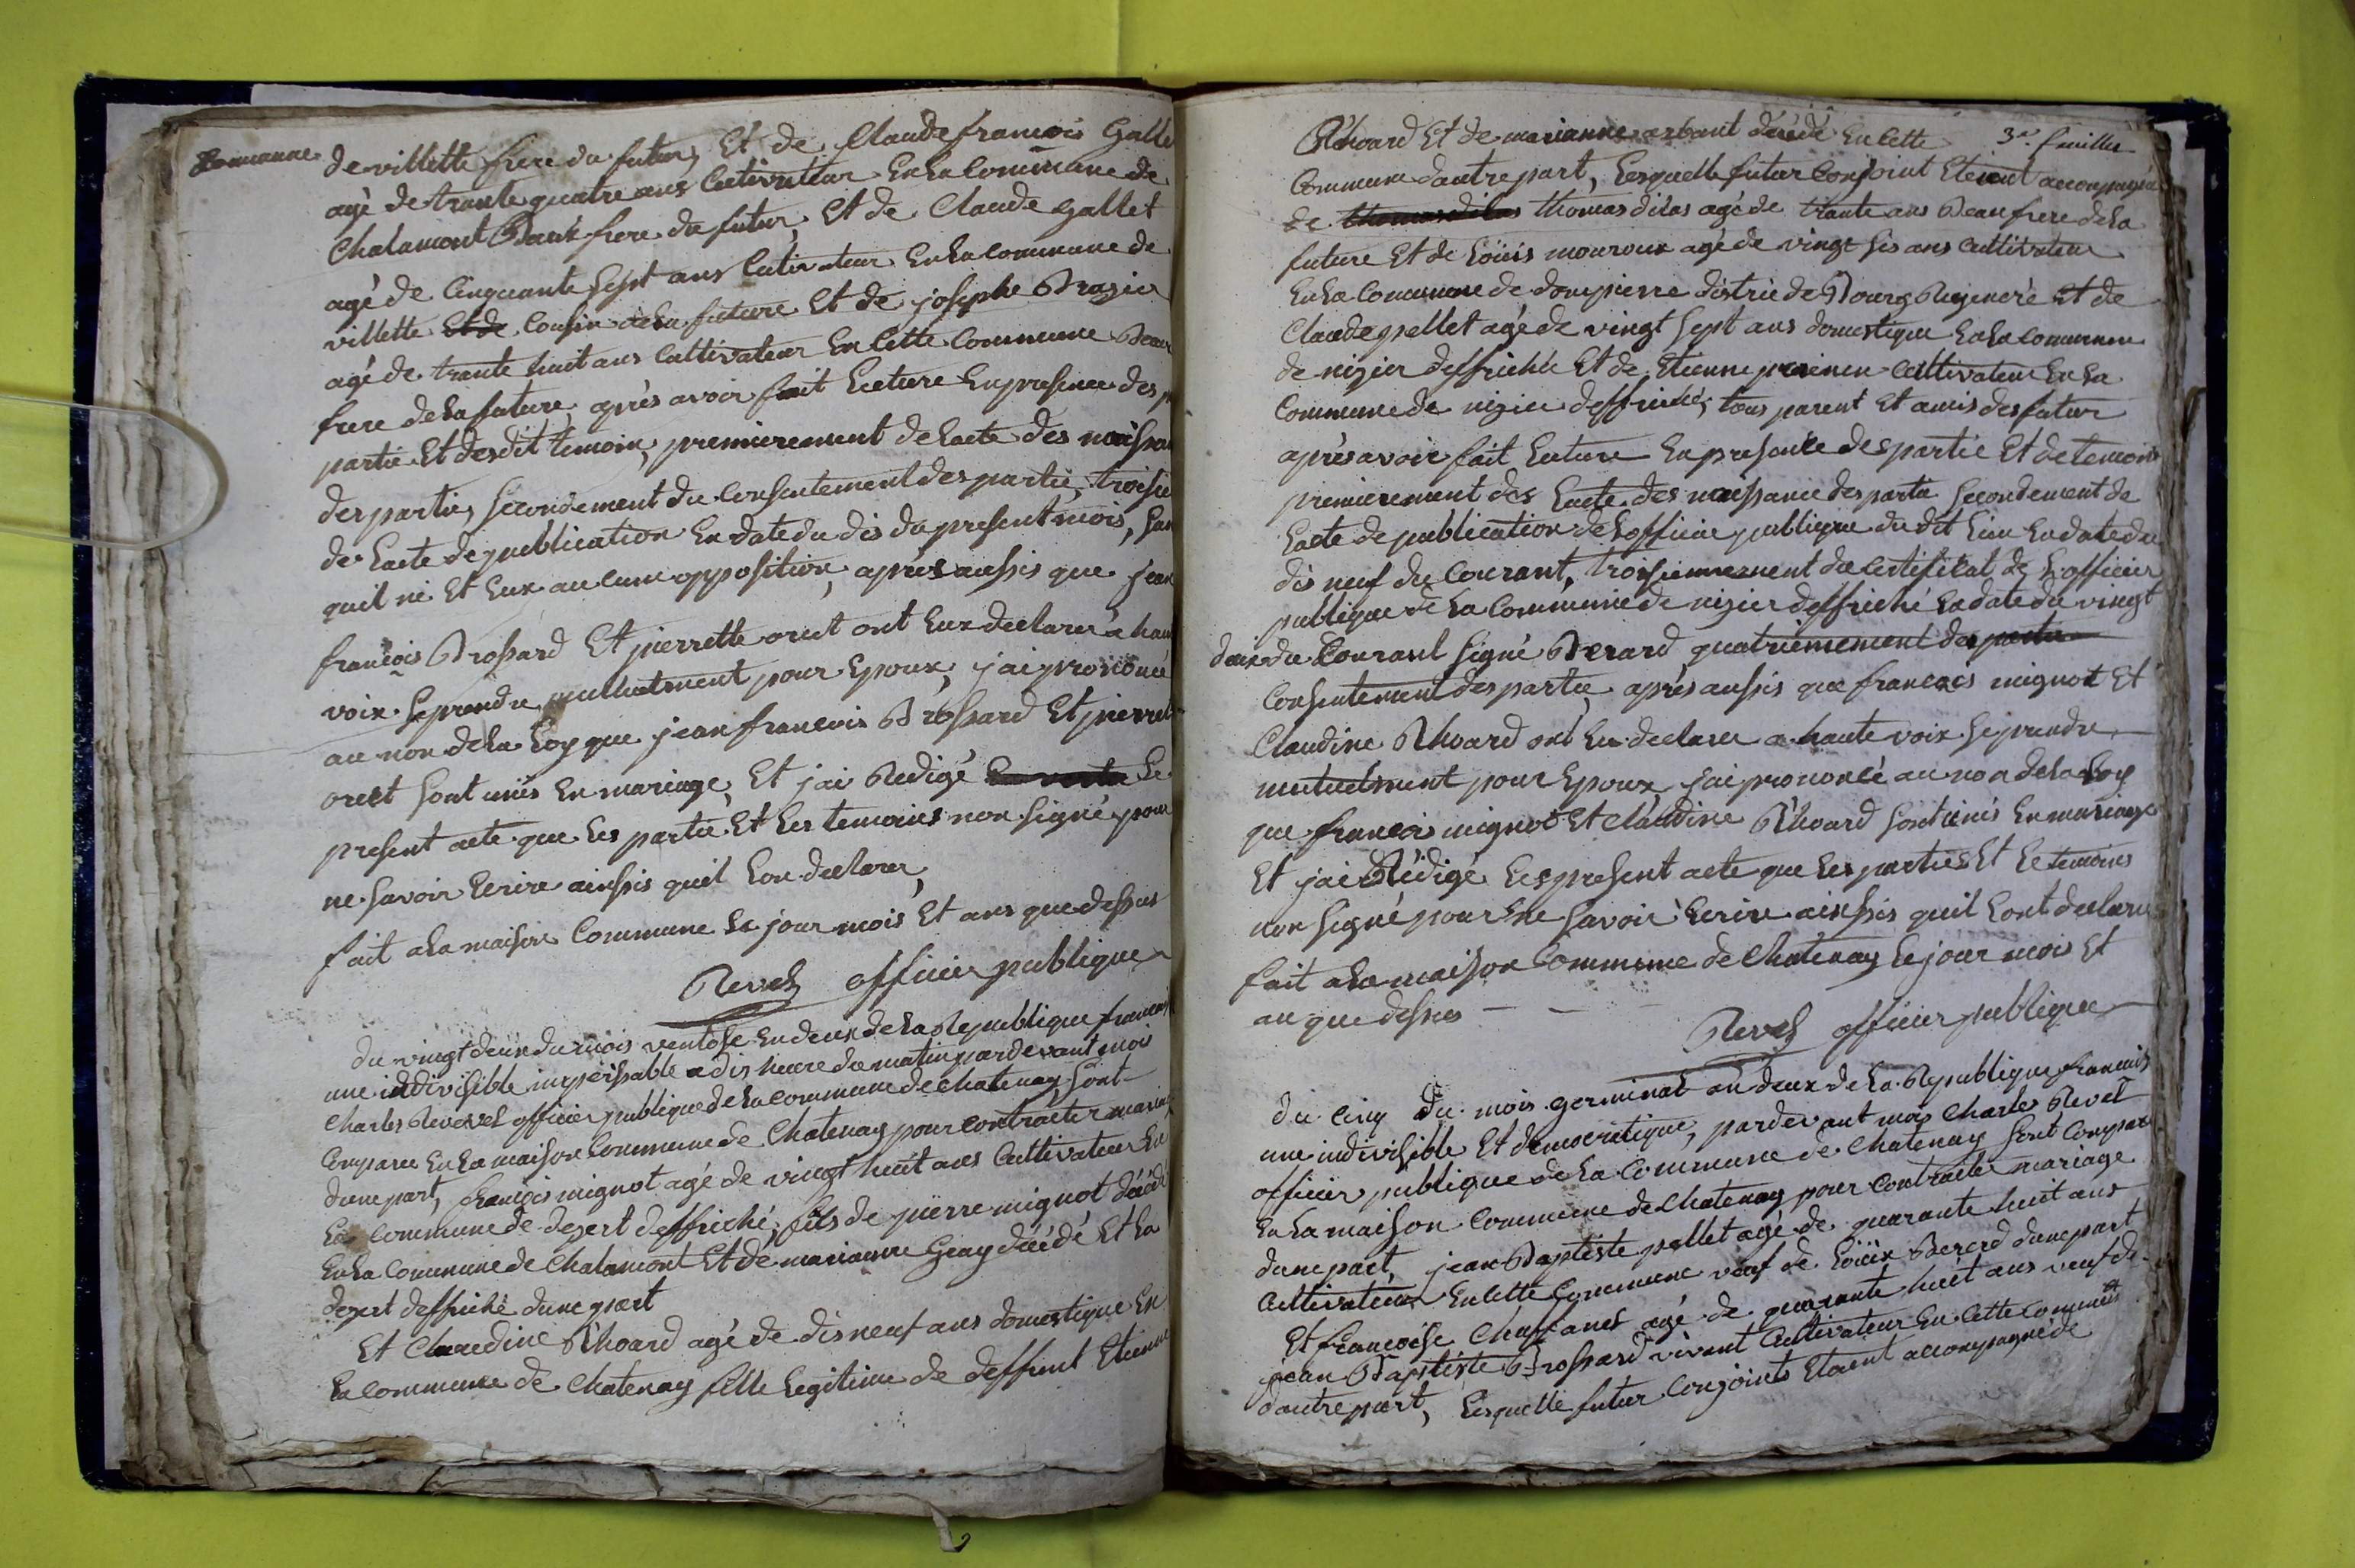 Commune de villette frere du futur, Et de Claude francois Galle
agé de trante quatre ans Cultivateur En La Commune de
Chalamont Beauk frere du futur, Et de Claude Gallet
agé de Cinquante Sept ans Cultivateur En La Commune de
villette Et de Cousin de La future Et de joseph Brazier
agé de trante huit ans Cultivateur En Cette Commune Beau
frere de La future, après avoir fait Lecture En presence des
partie Et des dit temoin, premierement de Lacte des naissan
des partie, Secondement du Consentement des partie, troisie
de Lacte de publication En date du dis du present mois, San
quil ni Et Eux aucune opposition, après aussis que jean
francois Brossard Et pierrette orcet ont Eux declarer a haut
voix Se prendre mutuelment pour Epoux, j'ai prononcé
au non de La Loy que jean francois Brossard Et pierret
orcet Sont unis En mariage, Et j'ai Redigé Le
present acte que Les partie Et Les temoins non Signé pour
ne Savoir Ecrire ainssis quil Lon declarer,
fait a La maison Commune Le jour mois Et ans que dessus
Revel officier publique
du vingt deux du mois ventose En deux de La Republique francais
une indivisible imperissable a dis heure du matin par devant moi
Charles Revevel officier publique de La commune de chatenay Sont
Comparu En La maison Commune de Chatenay pour contracter mariag
dune part, francois mignot agé de vingt huit ans Cultivateur En
La Commune de desert deffriché, fils de pierre mignot décédé
En La Commune de Chalamont Et de marianne Geay décédé Et La
desert deffriché dune part
Et Claudine Rhoard agé de dis neuf ans domestique En
La commune de Chatenay fille Legitime de deffunt Etienne
3e feuillet
Rhoard Et de marianne arbant décédé En Cette
Commune dautre part, Lesquelle futur Conjoint Etoient accompagné
de thomas dilas thomas dilas agé de trante ans Beau frere de La
future Et de Loüis mouroux agé de vingt Sis ans Cultivateur
En La Commune de dompierre distric de Bourg Regeneré Et de
Claude pellet agé de vingt Sept ans domestique En La Commune
de nizier deffriché Et de Etienne Cultivateur En La
Commune de nizier deffriché, tous parent Et amis des futur
après avoir fait Lecture En presence des partie Et de temoin
premierement des Lacte des naissance des partie Secondement de
Lacte de publication de Lofficier publique du dit Lieu En date du
dis neuf du Courant, troisiemement du Certificat de Lofficier
publique de La Commune de nizier deffriché En date du vingt
deux du Courant Signé Berard quatriemement des partie
Consentement des partie, après aussis que francois mignot Et
Claudine Rhoard ont Eu declarer a haute voix Se prendre
mutuelment pour Epoux j'ai prononcé au non de La Loy
que francois mignot Et Claudine Rhoard Sont unis En mariage
Et j'ai Rédigé Les present acte que Les parties Et Le temoins
non Signé pour Ene Savoir Ecrire ainssis quil Lont declaru
fait a La maison Commune de Chatenay Le jour mois Et
an que dessus
Revel officier publique
du cinq du mois germinal an deux de La Republique francais
une indivisible Et democratique, par devant moi Charles Revel
officier publique de La Commune de Chatenay Sont Comparu
En La maison Commune de Chatenay pour Contracter mariage
dune part, jean Baptiste pellet agé de quarante huit ans
Cultivateur En Cette Commune veuf de Loüix Bererd dune part
Et francoise Chaffanet agé de quarante huit ans veuf de
jean Baptiste Brossard vivant Cultivateur En Cette Commune
dautre part, Lesquelle futur Conjoints Etoient accompagné de